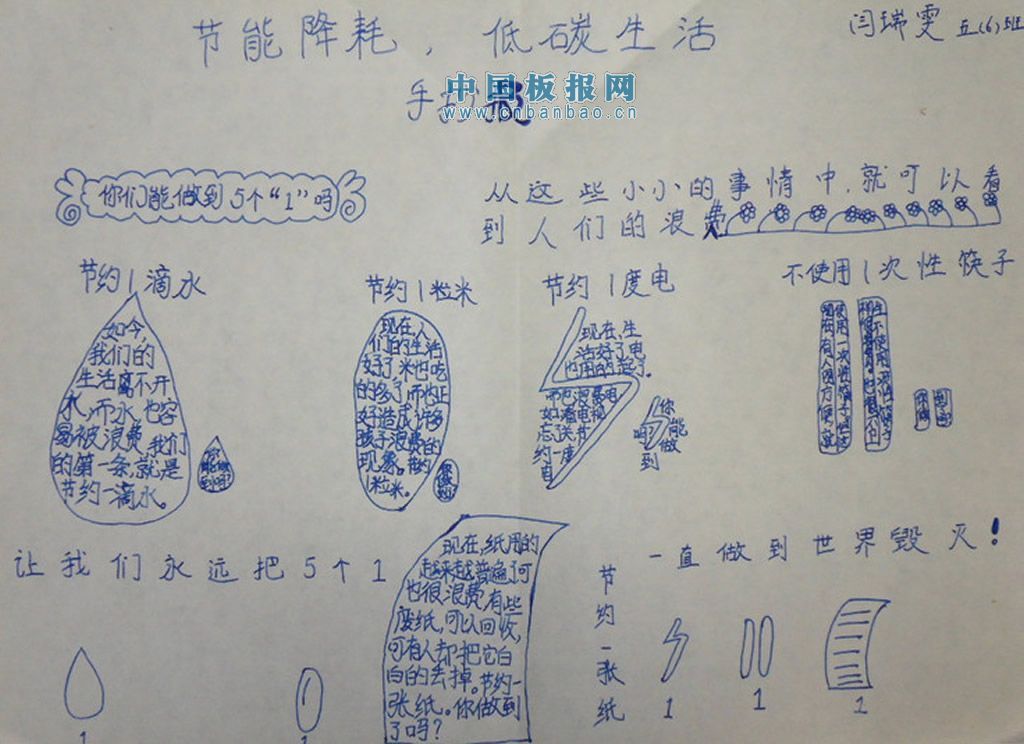 节能降耗，低碳生活
闫瑞雯 五(6)班
手抄报
中国板报网
www.cnbanbao.cn
你们能做到5个“1”吗
从这些小小的事情中,就可以看
到人们的浪费
节约1滴水
如今,
我们的
生活离不开
水,而水也容
易被浪费,我们
的第一条,就是
节约一滴水。
你
能做
到吗?
节约1粒米
现在人
们的生活
好了米也吃
的多了,而
好造成许多
孩子浪费的
现象。节约
1粒米。
节约1度电
现在生
活好了电
也用的
约一度
电
你
能
做
到
吗
不使用1次性筷子
让我们永远把5个1
现在,纸用的
越来越普遍了可
也很浪费,有些
废纸,可以回收,
可有人却把它白
白的丢掉。节约一
张纸。你做到
了吗?
节
约
一
张
纸
一直做到世界毁灭!
1
1
1
1
1